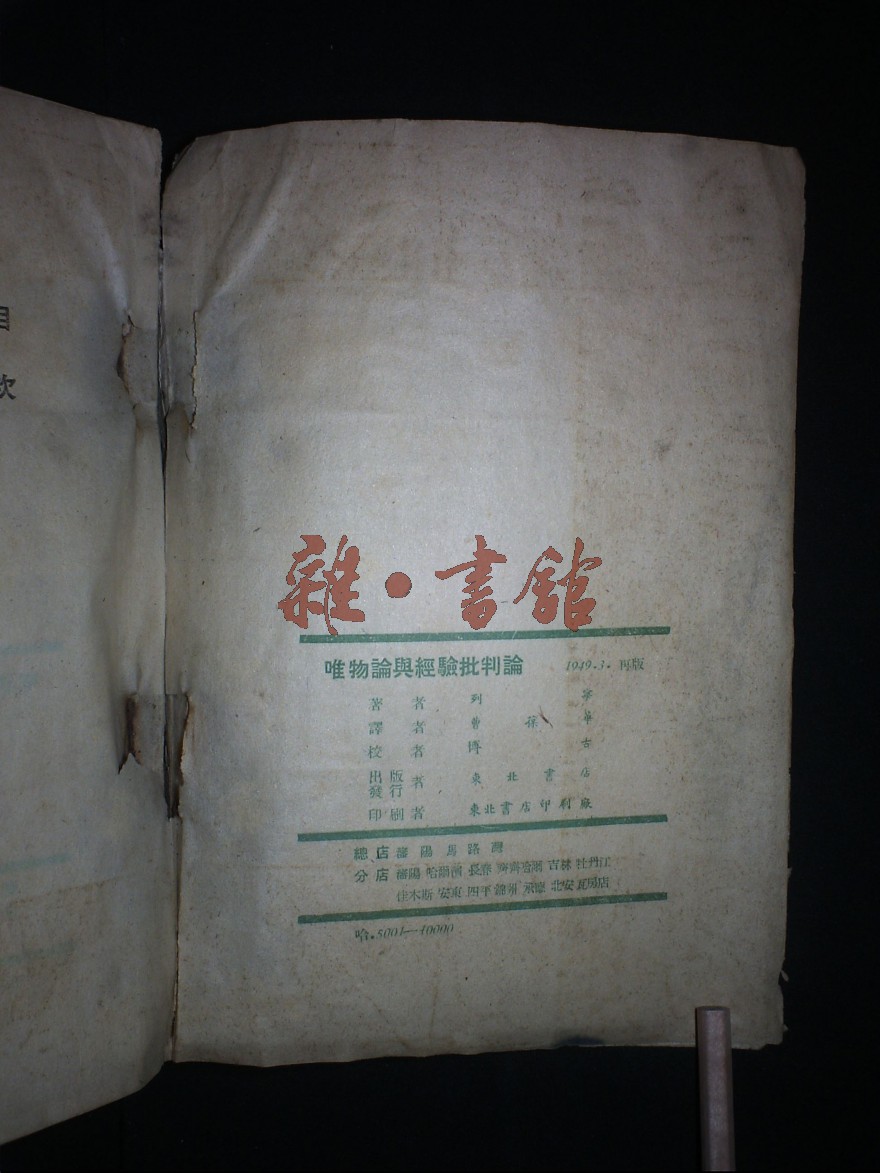 目
次
雜·書館
唯物論與經驗批判論 1949.3. 再版
著者 列寧
譯者 曹葆華
校者 博古
出版發行者 東北書店
印刷者 東北書店印刷廠
總店 瀋陽馬路灣
分店 瀋陽 哈爾濱 長春 齊齊哈爾 吉林 牡丹江
佳木斯 安東 四平 錦州 承德 北安 瓦房店
哈.5001—10000